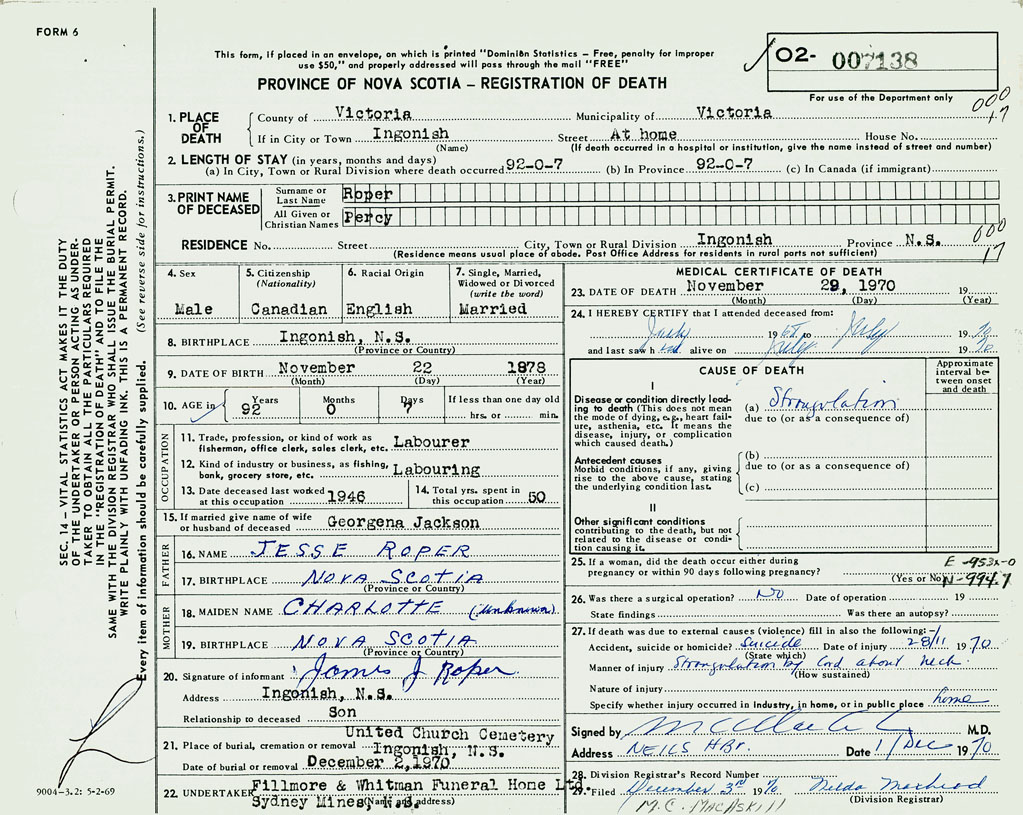 FORM 6
This form, if placed in an envelope, on which is printed "Dominion Statistics – Free, penalty for improper
use $50," and properly addressed will pass through the mail "FREE"
PROVINCE OF NOVA SCOTIA – REGISTRATION OF DEATH
O2- 007138
For use of the Department only
000
17
1. PLACE OF DEATH
County of Victoria Municipality of Victoria
If in City or Town Ingonish Street At home House No.
(Name) (If death occurred in a hospital or institution, give the name instead of street and number)
2. LENGTH OF STAY (in years, months and days)
(a) In City, Town or Rural Division where death occurred 92-0-7 (b) In Province 92-0-7 (c) In Canada (if immigrant)
3. PRINT NAME OF DECEASED
Surname or Last Name Roper
All Given or Christian Names Percy
000
17
RESIDENCE No. Street City, Town or Rural Division Ingonish Province N.S.
(Residence means usual place of abode. Post Office Address for residents in rural parts not sufficient)
4. Sex Male
5. Citizenship (Nationality) Canadian
6. Racial Origin English
7. Single, Married, Widowed or Divorced (write the word) Married
8. BIRTHPLACE Ingonish, N.S.
(Province or Country)
9. DATE OF BIRTH November 22 1878
(Month) (Day) (Year)
10. AGE in Years 92 Months 0 Days 7 If less than one day old
hrs. or min.
OCCUPATION
11. Trade, profession, or kind of work as
fisherman, office clerk, sales clerk, etc. Labourer
12. Kind of industry or business, as fishing,
bank, grocery store, etc. Labouring
13. Date deceased last worked
at this occupation 1946
14. Total yrs. spent in
this occupation 50
15. If married give name of wife
or husband of deceased Georgena Jackson
FATHER
16. NAME JESSE ROPER
17. BIRTHPLACE NOVA SCOTIA
(Province or Country)
MOTHER
18. MAIDEN NAME CHARLOTTE (Unknown)
19. BIRTHPLACE NOVA SCOTIA
(Province or Country)
20. Signature of informant James J Roper
Address Ingonish, N.S.
Relationship to deceased Son
United Church Cemetery
21. Place of burial, cremation or removal Ingonish, N.S.
Date of burial or removal December 2, 1970
22. UNDERTAKER Fillmore & Whitman Funeral Home Ltd.
Sydney Mines, N.S.
(Name and address)
MEDICAL CERTIFICATE OF DEATH
23. DATE OF DEATH November 29, 1970 19
(Month) (Day) (Year)
24. I HEREBY CERTIFY that I attended deceased from:
19 to July 1970
and last saw h im alive on July 1970
CAUSE OF DEATH
Approximate interval between onset and death
I
Disease or condition directly leading to death (This does not mean the mode of dying, e.g., heart failure, asthenia, etc. It means the disease, injury, or complication which caused death.)
(a) Strangulation
due to (or as a consequence of)
Antecedent causes
Morbid conditions, if any, giving rise to the above cause, stating the underlying condition last.
(b)
due to (or as a consequence of)
(c)
II
Other significant conditions
contributing to the death, but not related to the disease or condition causing it.
25. If a woman, did the death occur either during
pregnancy or within 90 days following pregnancy?
(Yes or No)
E -953X-0
N-994.7
26. Was there a surgical operation? No Date of operation 19
State findings Was there an autopsy?
27. If death was due to external causes (violence) fill in also the following:-
Accident, suicide or homicide? Suicide Date of injury 28/11 1970
(State which)
Manner of injury Strangulation by Cord about neck.
(How sustained)
Nature of injury
Specify whether injury occurred in industry, in home, or in public place home
Signed by M.D.
Address NEILS HBr. Date 1/Dec 1970
28. Division Registrar's Record Number
29. Filed December 3rd 1970
(Division Registrar)
M.C. MACASKILL
SEC. 14 – VITAL STATISTICS ACT MAKES IT THE DUTY
OF THE UNDERTAKER OR PERSON ACTING AS UNDER-
TAKER TO OBTAIN ALL THE PARTICULARS REQUIRED
IN THE "REGISTRATION OF DEATH" AND TO FILE THE
SAME WITH THE DIVISION REGISTRAR WHO SHALL ISSUE THE BURIAL PERMIT.
WRITE PLAINLY WITH UNFADING INK. THIS IS A PERMANENT RECORD.
Every item of information should be carefully supplied. (See reverse side for instructions.)
9004-3.2: 5-2-69